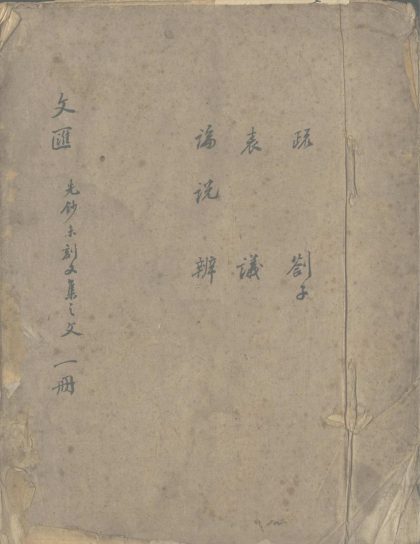 疏 劄子
表 議
論說 辨
文匯 先鈔未刻文集之文 一冊